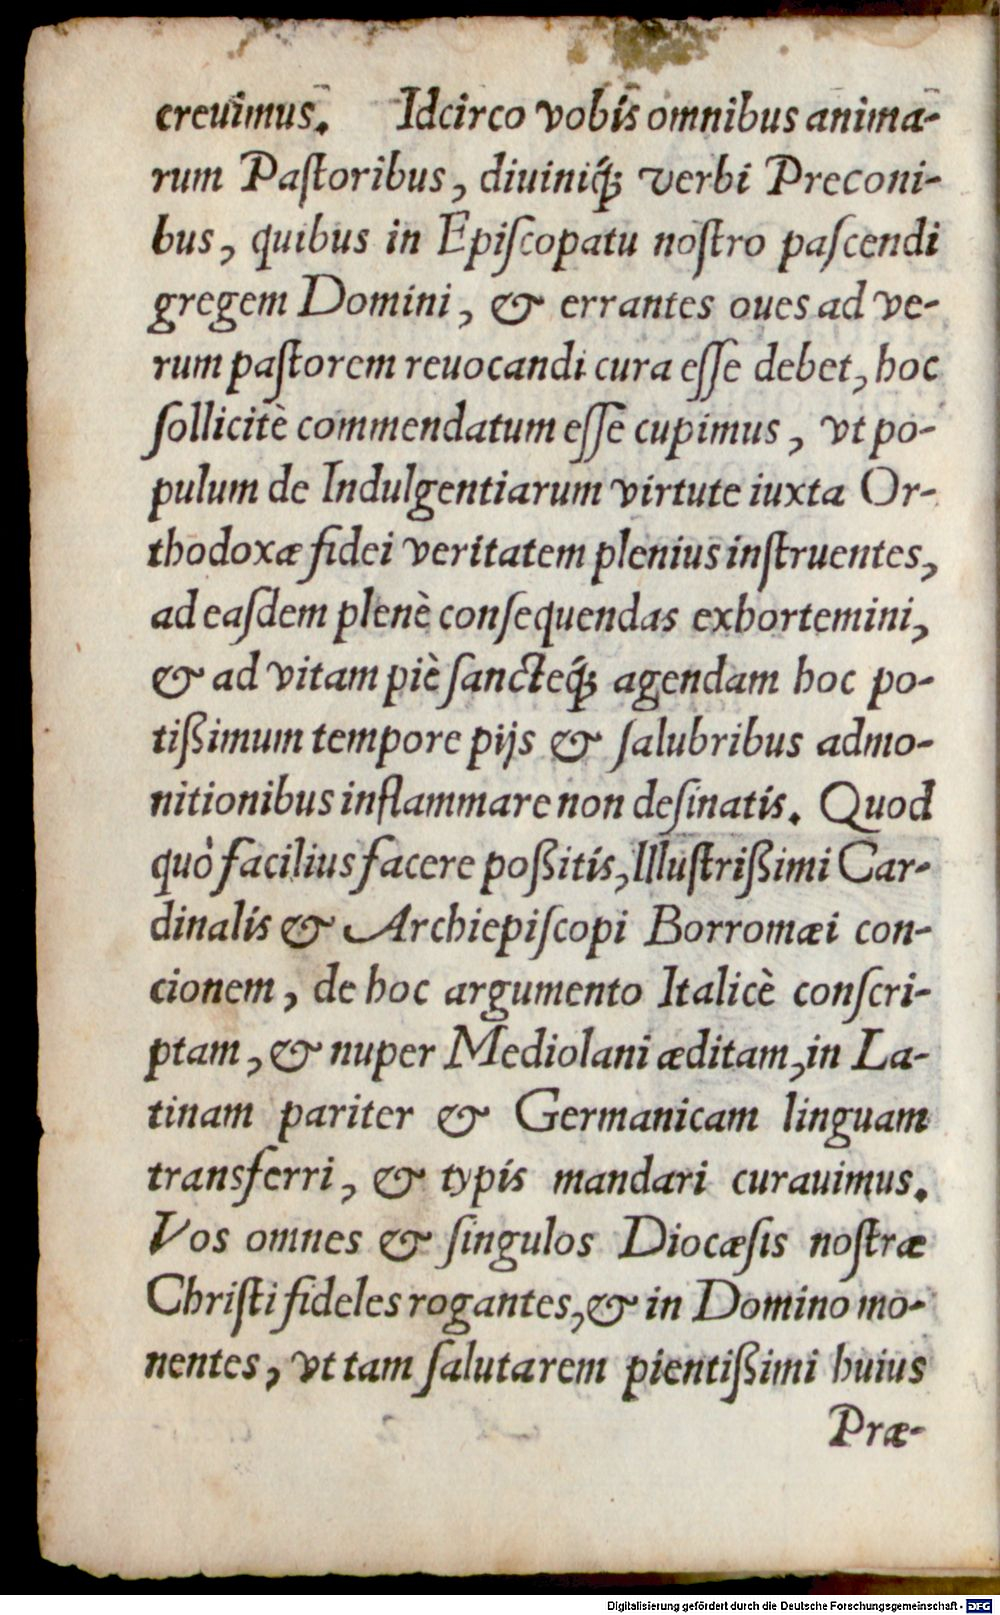 creuimus. Idcirco vobis omnibus anima-
rum Paſtoribus, diuiniq́ꝫ verbi Preconi-
bus, quibus in Epiſcopatu noſtro paſcendi
gregem Domini, & errantes oues ad ve-
rum paſtorem reuocandi cura eſſe debet, hoc
ſollicitè commendatum eſſe cupimus, vt po-
pulum de Indulgentiarum virtute iuxta Or-
thodoxæ fidei veritatem plenius inſtruentes,
ad eaſdem plenè conſequendas exhortemini,
& ad vitam piè ſancteq́ꝫ agendam hoc po-
tißimum tempore pijs & ſalubribus admo-
nitionibus inflammare non deſinatis. Quod
quò facilius facere poßitis, Illuſtrißimi Car-
dinalis & Archiepiſcopi Borromæi con-
cionem, de hoc argumento Italicè conſcri-
ptam, & nuper Mediolani æditam, in La-
tinam pariter & Germanicam linguam
transferri, & typis mandari curauimus.
Vos omnes & ſingulos Diocæſis noſtræ
Chriſti fideles rogantes, & in Domino mo-
nentes, vt tam ſalutarem pientißimi huius
Præ-
Digitalisierung gefördert durch die Deutsche Forschungsgemeinschaft - DFG